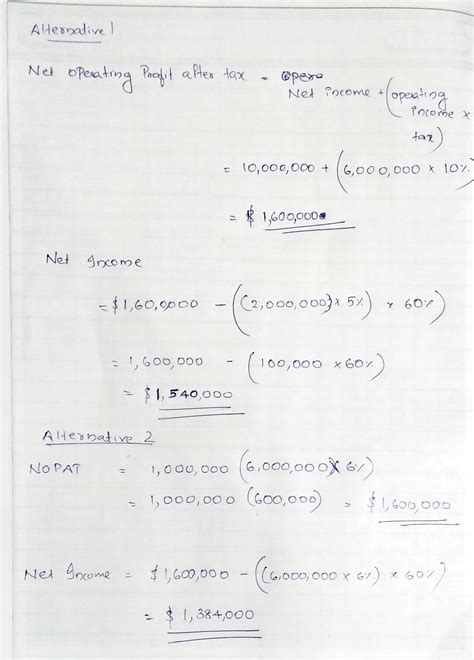 Alternative 1
Net operating Profit after tax = opera
Net income + (operating
income x
tax)
= 10,000,000 + (6,000,000 x 10%
= $ 1,600,000
Net Income
= $1,600,000 - ((2,000,000) x 5%) x 60%)
= 1,600,000 - (100,000 x 60%)
= $1,540,000
Alternative 2
NOPAT = 1,000,000 (6,000,000 x 6%)
= 1,000,000 (600,000) = $1,600,000
Net Income = $1,600,000 - ((6,000,000 x 6%) x 60%)
= $ 1,384,000